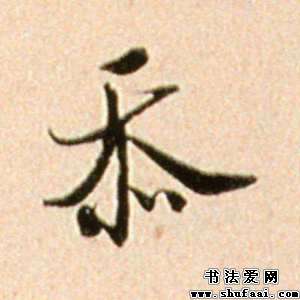 忝
书法爱网
www.shufaai.com